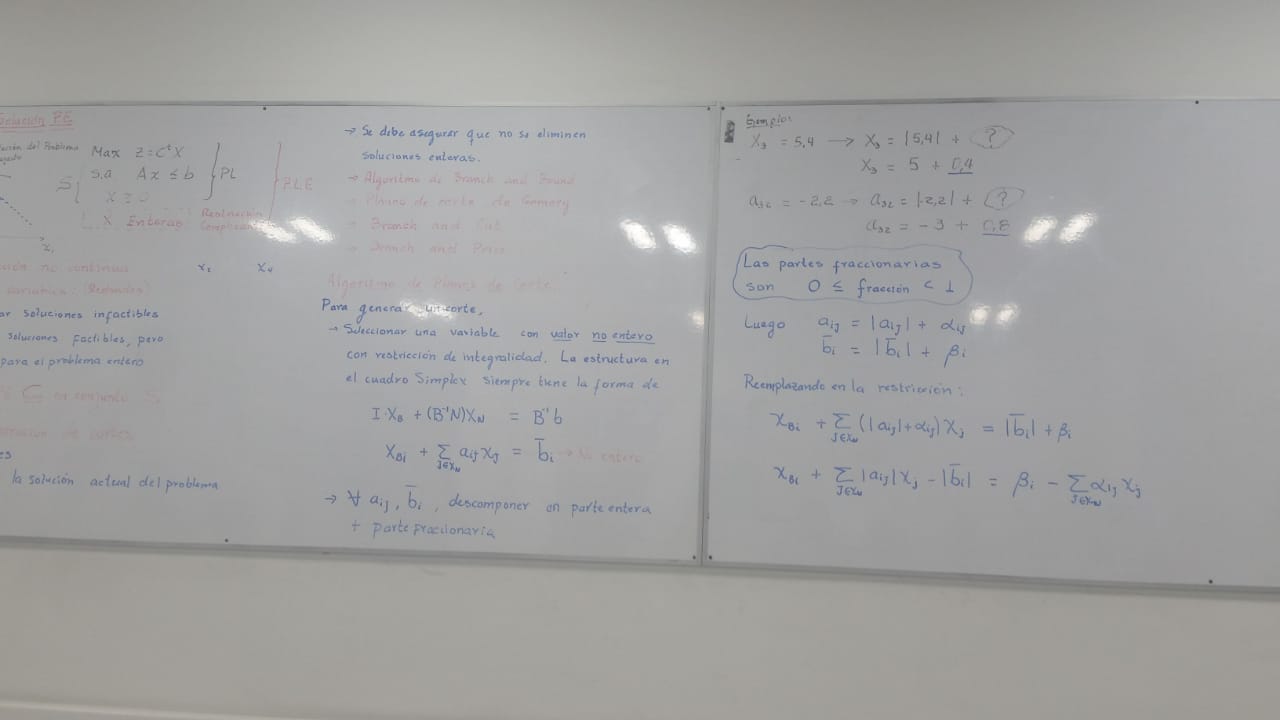 Solución PE
del Problema
Max Z = CᵗX
s.a Ax ≤ b
X ≥ 0
X Enteras
} PL
} P.L.E
S
x₁
no continua
x₂ x₄
soluciones infactibles
soluciones factibles, pero
para el problema entero
la solución actual del problema
→ Se debe asegurar que no se eliminen
soluciones enteras.
→ Algoritmo de Branch and Bound
→ Plano de corte de Gomory
→ Branch and Cut
→ Branch and Price
Algoritmo de Planos de Corte
Para generar un corte,
→ Seleccionar una variable con valor no entero
con restricción de integralidad. La estructura en
el cuadro Simplex siempre tiene la forma de
I·X_B + (B⁻¹N)X_N = B⁻¹b
X_Bi + Σ_{J∈X_N} a_ij x_j = b̄_i → No entero
→ ∀ a_ij, b̄_i, descomponer en parte entera
+ parte fraccionaria
Ejemplo:
X₃ = 5,4 → X₃ = |5,4| + (?)
X₃ = 5 + 0,4
a₃₂ = -2,2 → a₃₂ = |-2,2| + (?)
a₃₂ = -3 + 0,8
Las partes fraccionarias
son 0 ≤ fracción < 1
Luego a_ij = |a_ij| + α_ij
b̄_i = |b̄_i| + β_i
Reemplazando en la restricción:
X_Bi + Σ_{J∈X_N} (|a_ij| + α_ij) X_j = |b̄_i| + β_i
X_Bi + Σ_{J∈X_N} |a_ij| X_j - |b̄_i| = β_i - Σ_{J∈X_N} α_ij X_j